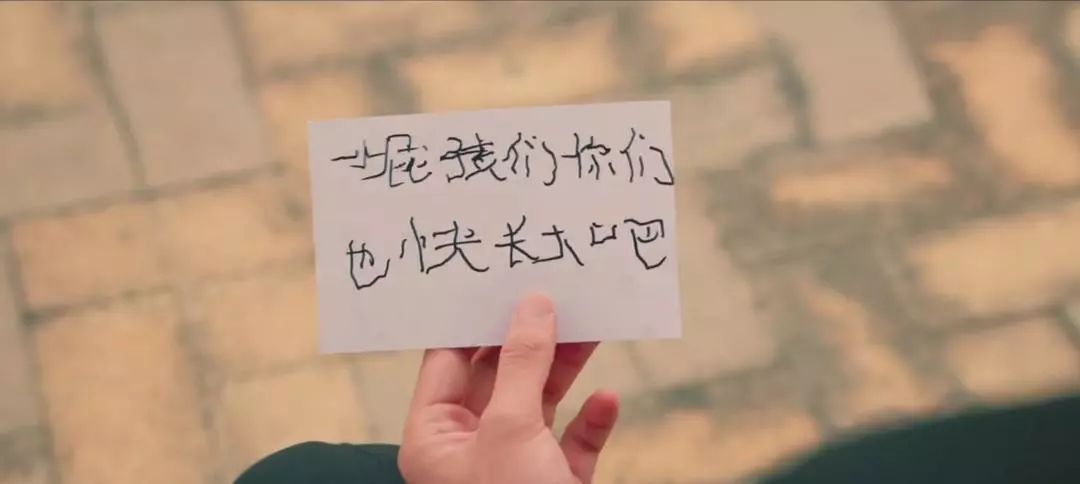 小屁孩们你们
也快长大吧